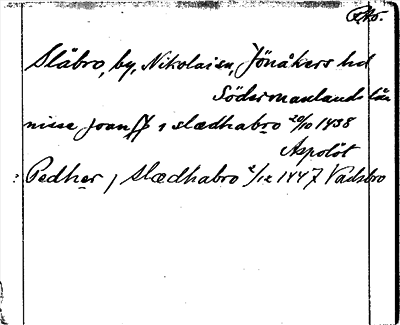 Släbro, by, Nikolai sn, Jönåkers hd
Södermanlands län
nisse joan 1 slædhabro 20/10 1438
Aspolöt
: Pedher 1 slædhabro 2/12 1447 Vadsbro